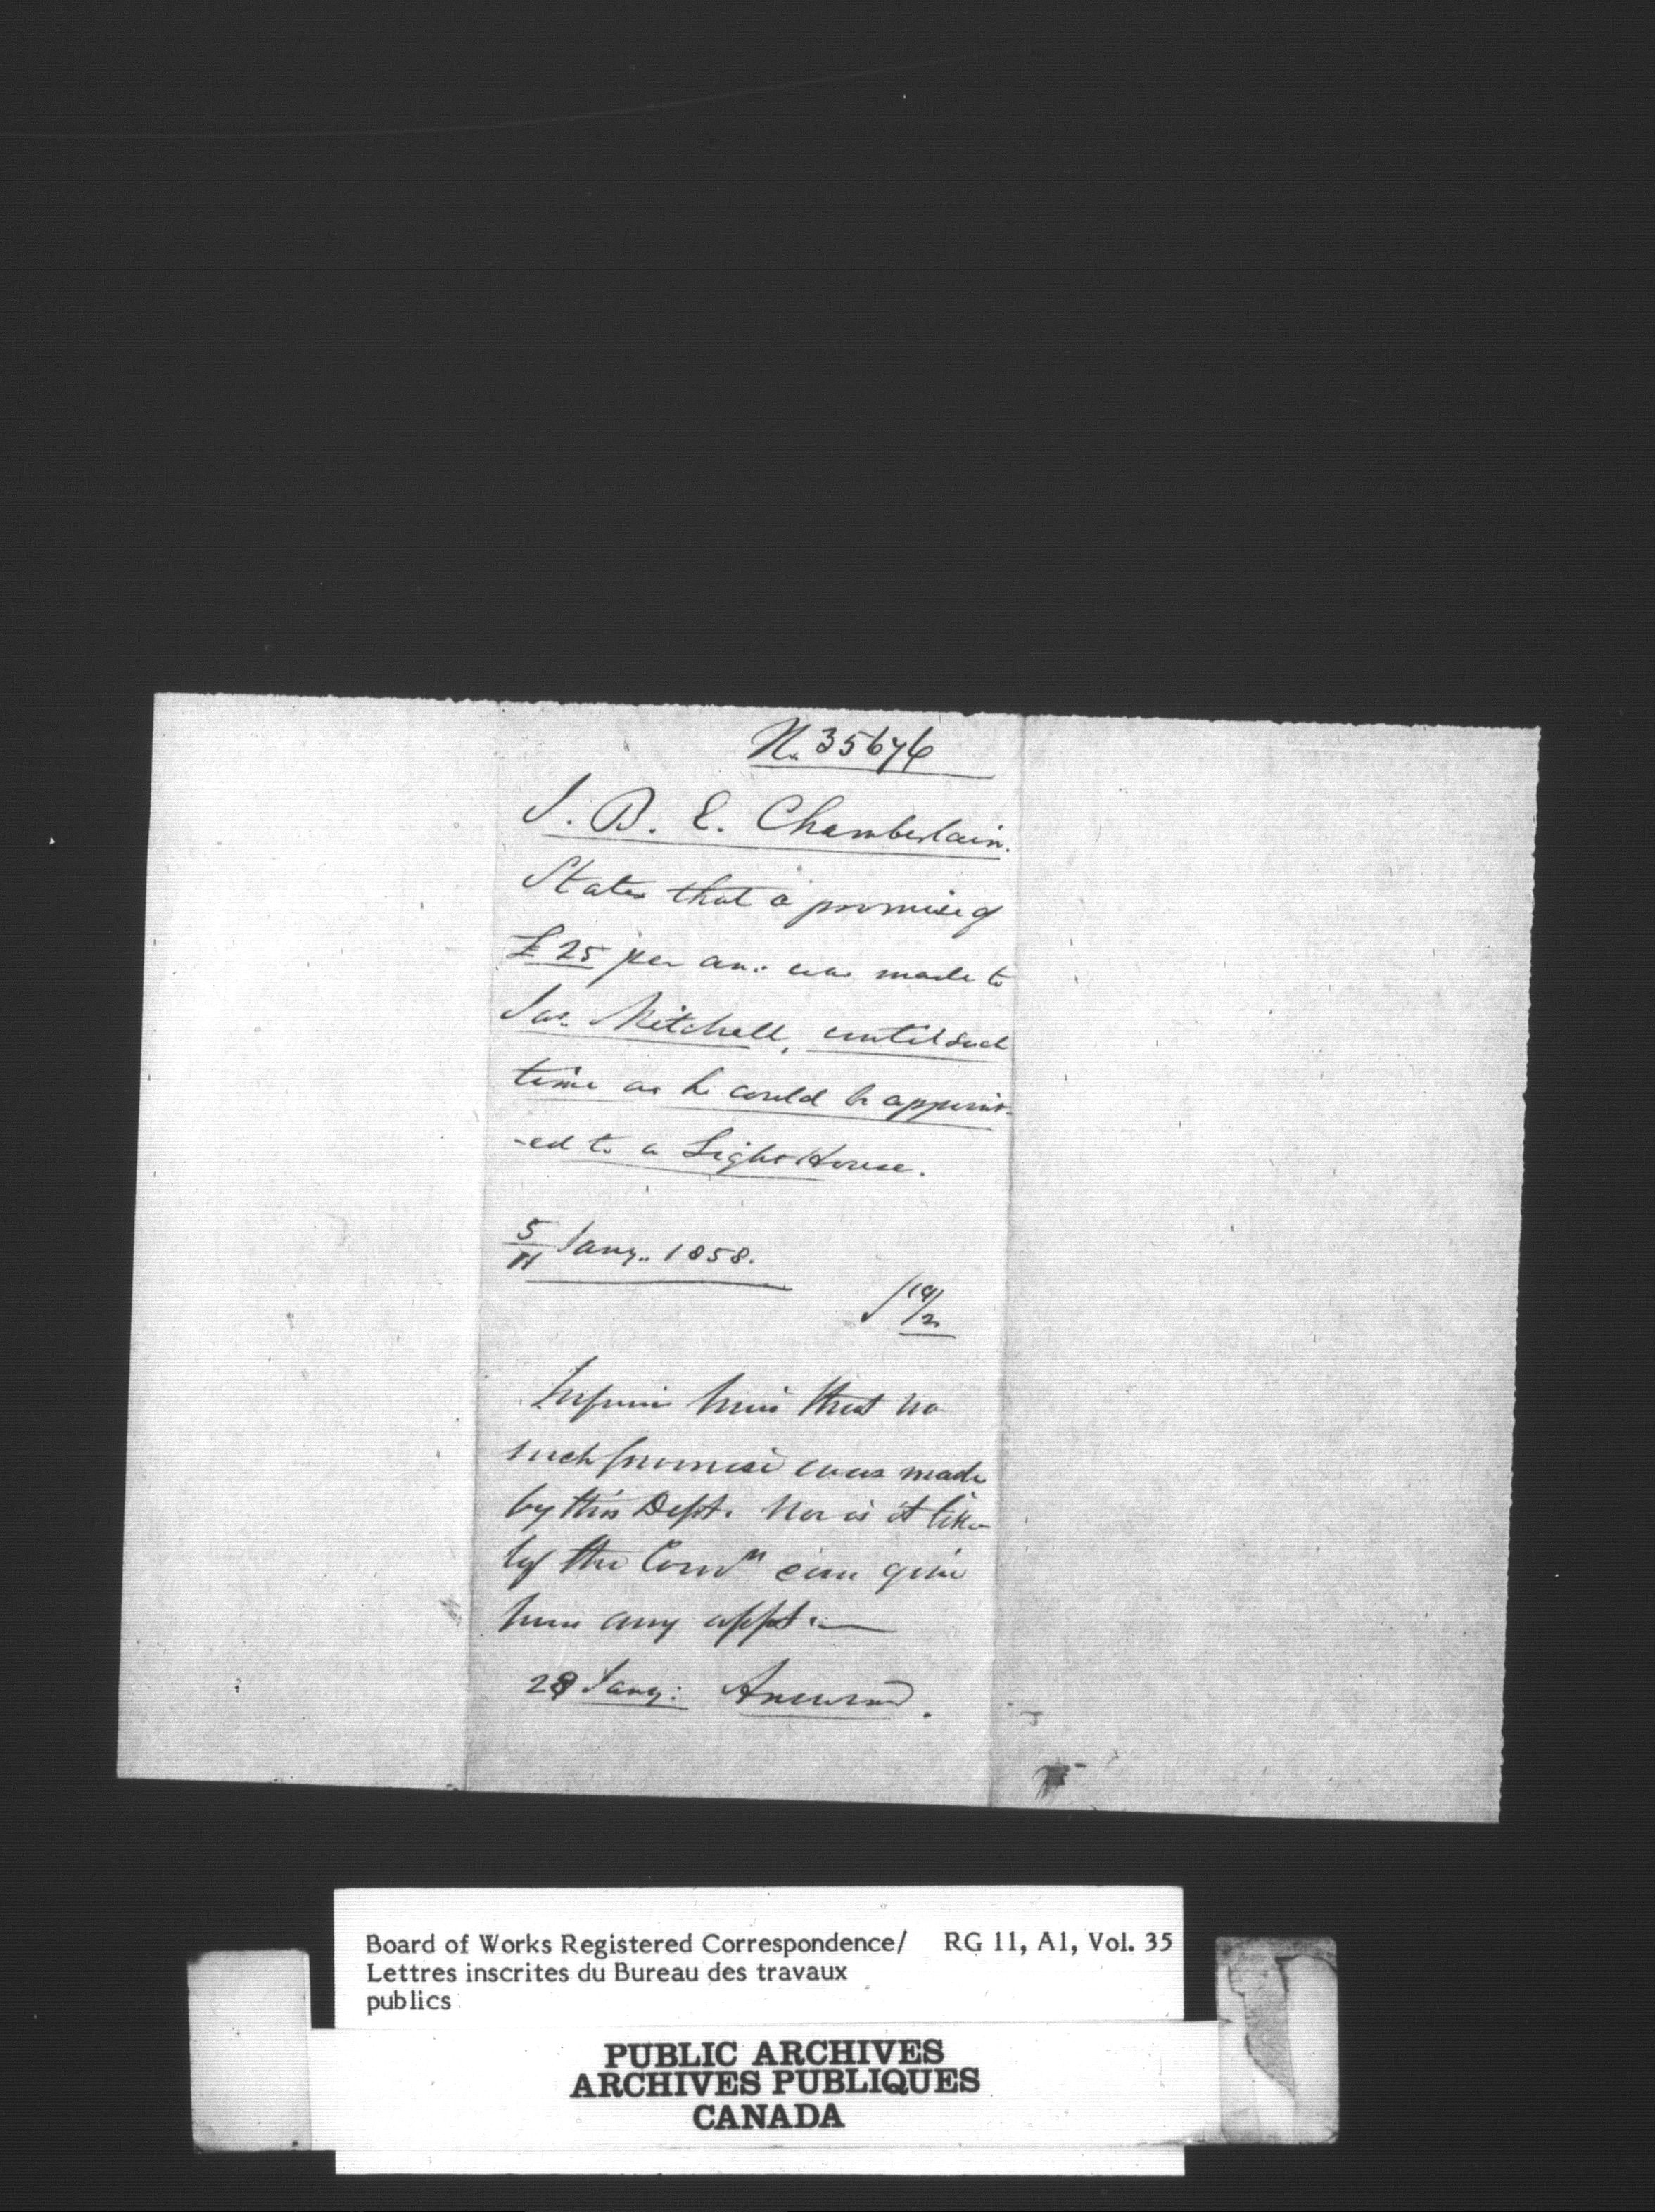 No. 35676
J. B. E. Chamberlain.
States that a promise of
£25 per an: was made to
Jas. Mitchell, until such
time as he could be appoint-
-ed to a Light House.
5/11 Jany. 1858.
Inform him that no
such promise was made
by this Dept. Nor is it like-
ly the Comrn can give
him any appt. —
28 Jany: Answered.
Board of Works Registered Correspondence/ RG 11, A1, Vol. 35
Lettres inscrites du Bureau des travaux
publics
PUBLIC ARCHIVES
ARCHIVES PUBLIQUES
CANADA